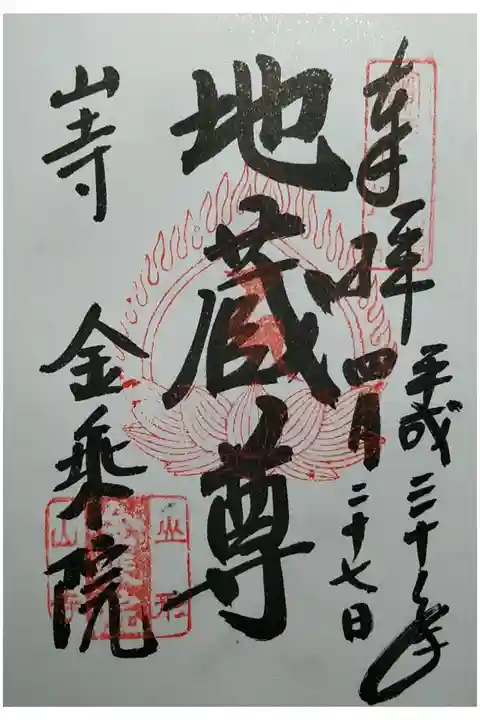 奉拝
平成三十年
四月二十七日
地蔵尊
山寺
金乗院
山形
山寺